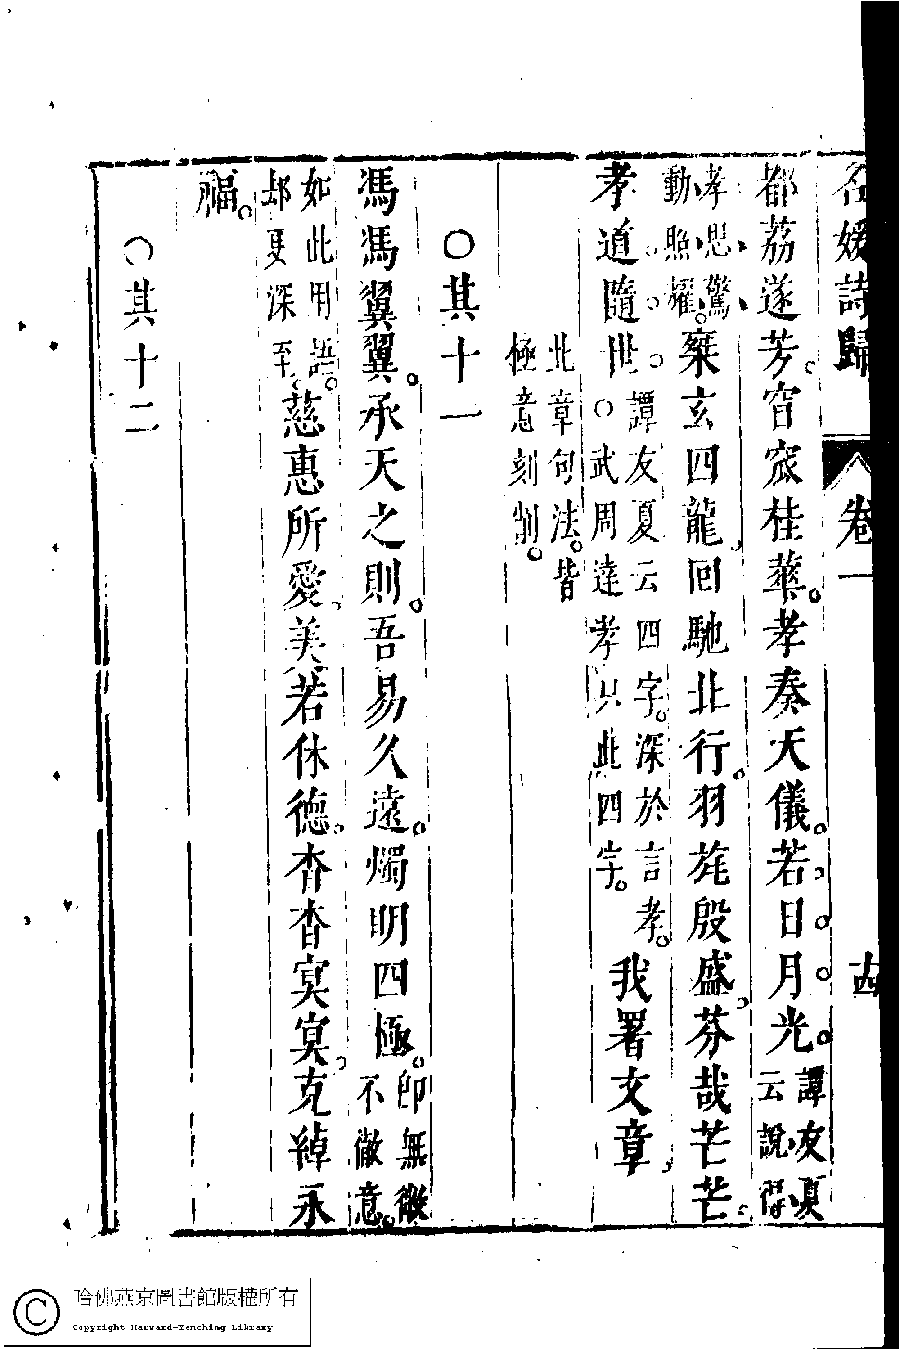 名媛詩歸 卷一 十四
都荔遂芳。窅窊桂華。孝奏天儀。若日月光。譚友夏云說得
孝思驚動照耀。椉玄四龍。回馳北行。羽旄殷盛。芬哉芒芒。
孝道隨世。譚友夏云四字。深於言孝。○武周達孝只此四字。我署文章。
此章句法。皆極意刻削。
○其十一
馮馮翼翼。承天之則。吾易久遠。燭明四極。卽無微不徹意。
如此用語。却更深至。慈惠所愛。美若休德。杳杳冥冥。克綽永
福。
○其十二
哈佛燕京圖書館版權所有
Copyright Harvard-Yenching Library